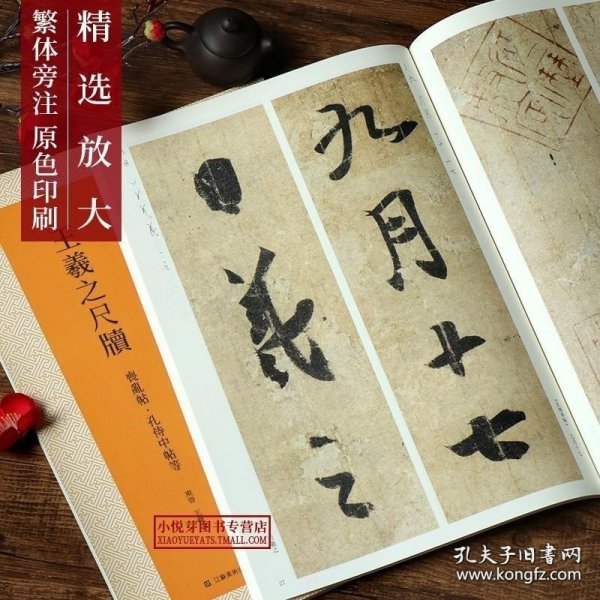 精选放大
繁体旁注 原色印刷
王羲之尺牘
喪亂帖·孔侍中帖等
東晉 王
江蘇美術
九月十七
日羲之
27
小悦芽图书专营店
XIAOYUEYATS.TMALL.COM
孔夫子旧书网
www.kongfz.com